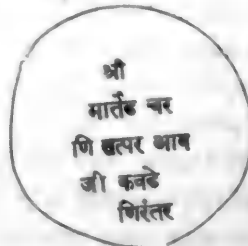 श्री
मार्तंड चर
णि तत्पर आब
जी कवडे
निरंतर